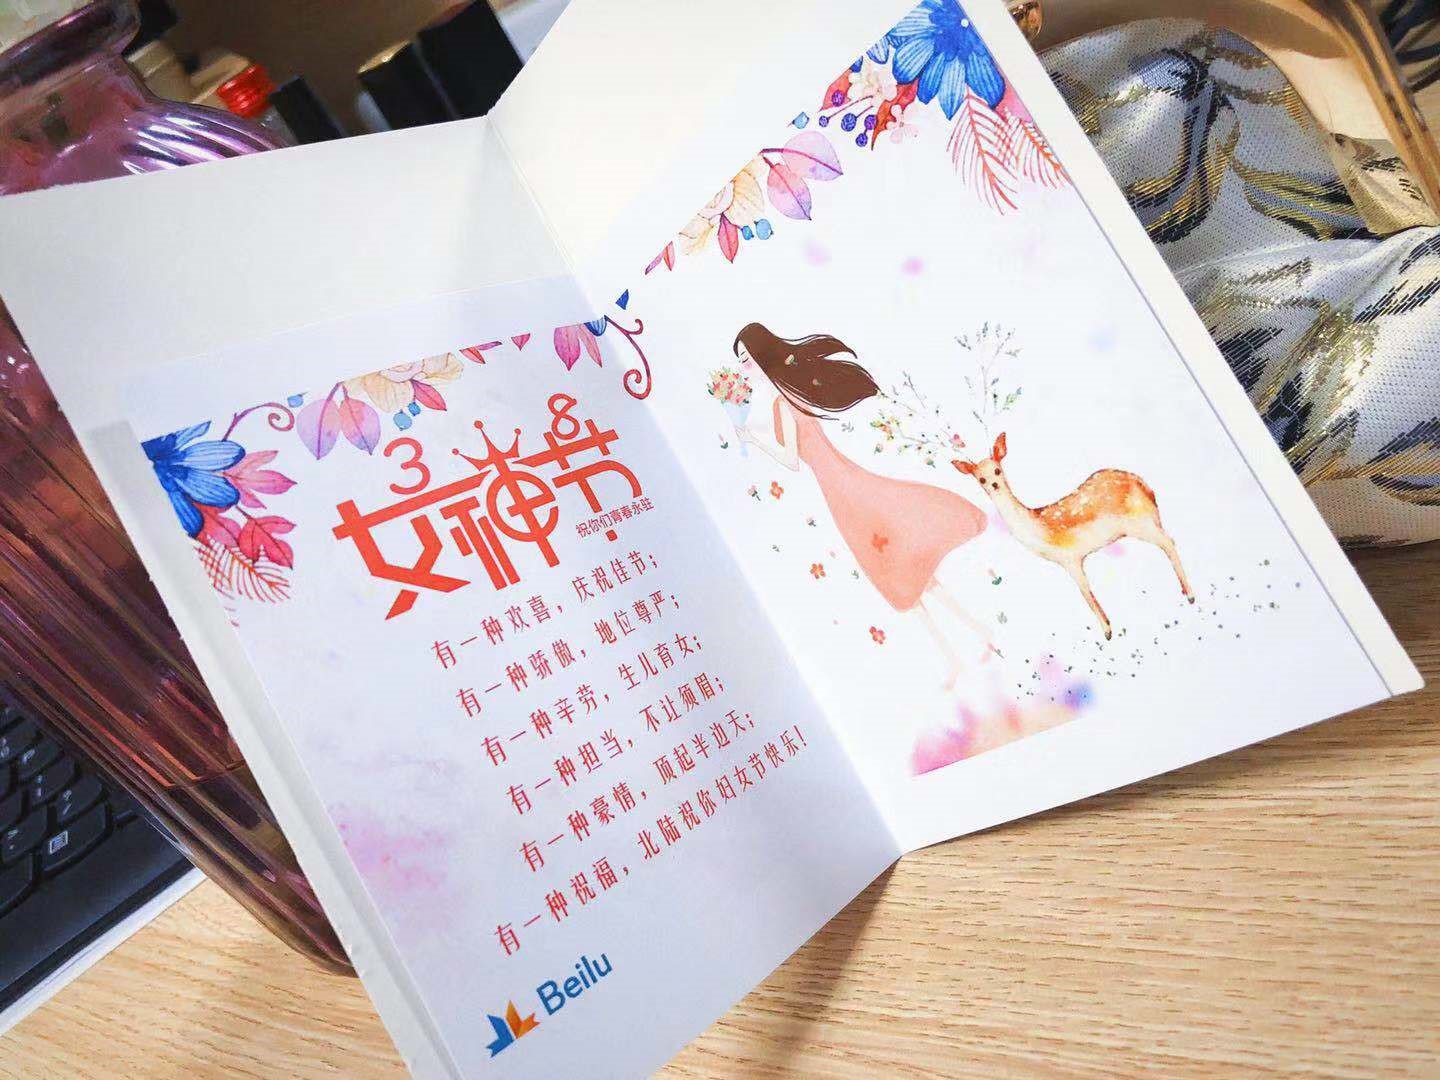 3 8
女神节
祝你们青春永驻
有一种欢喜，庆祝佳节；
有一种骄傲，地位尊严；
有一种辛劳，生儿育女；
有一种担当，不让须眉；
有一种豪情，顶起半边天；
有一种祝福，北陆祝你妇女节快乐！
Beilu